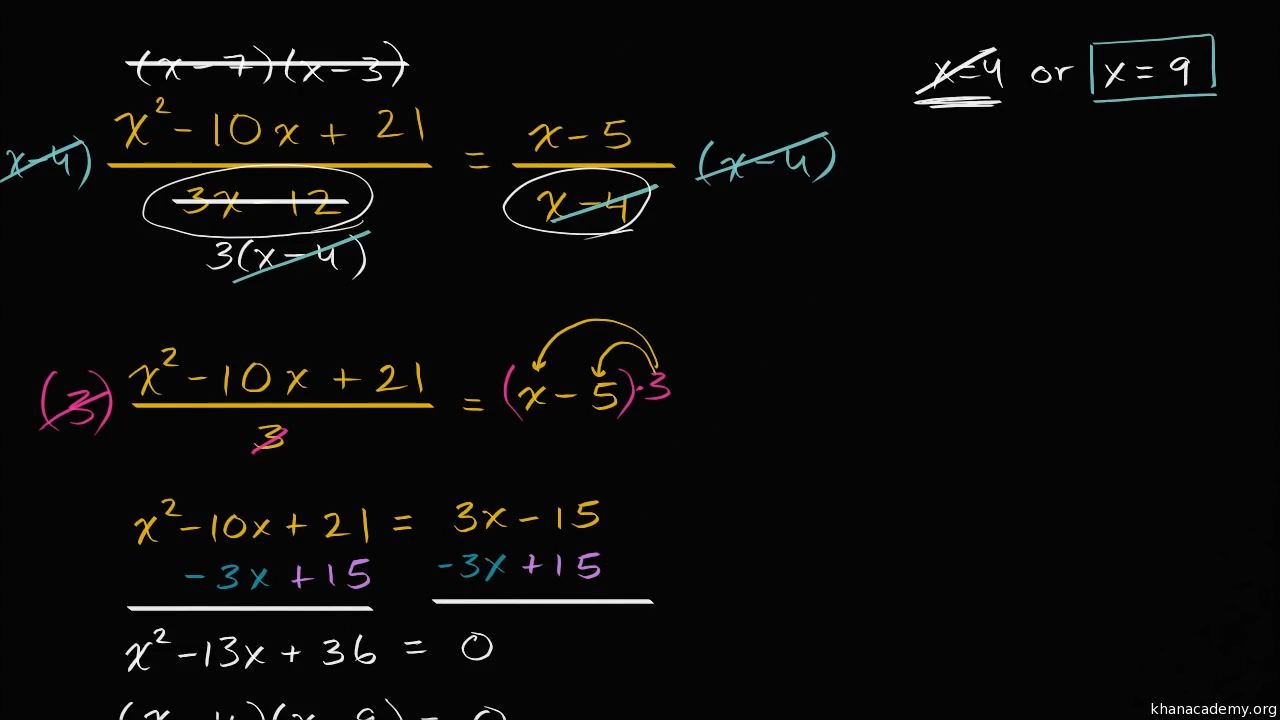 (x-7)(x-3)
x=4 or x = 9
x² - 10x + 21 = x - 5
x-4) (x-4)
3x - 12 x - 4
3(x-4)
(3) x² - 10x + 21 = (x - 5)·3
3
x² - 10x + 21 = 3x - 15
-3x +15 -3x +15
x² - 13x + 36 = 0
(x-4)(x-9) = 0
khanacademy.org